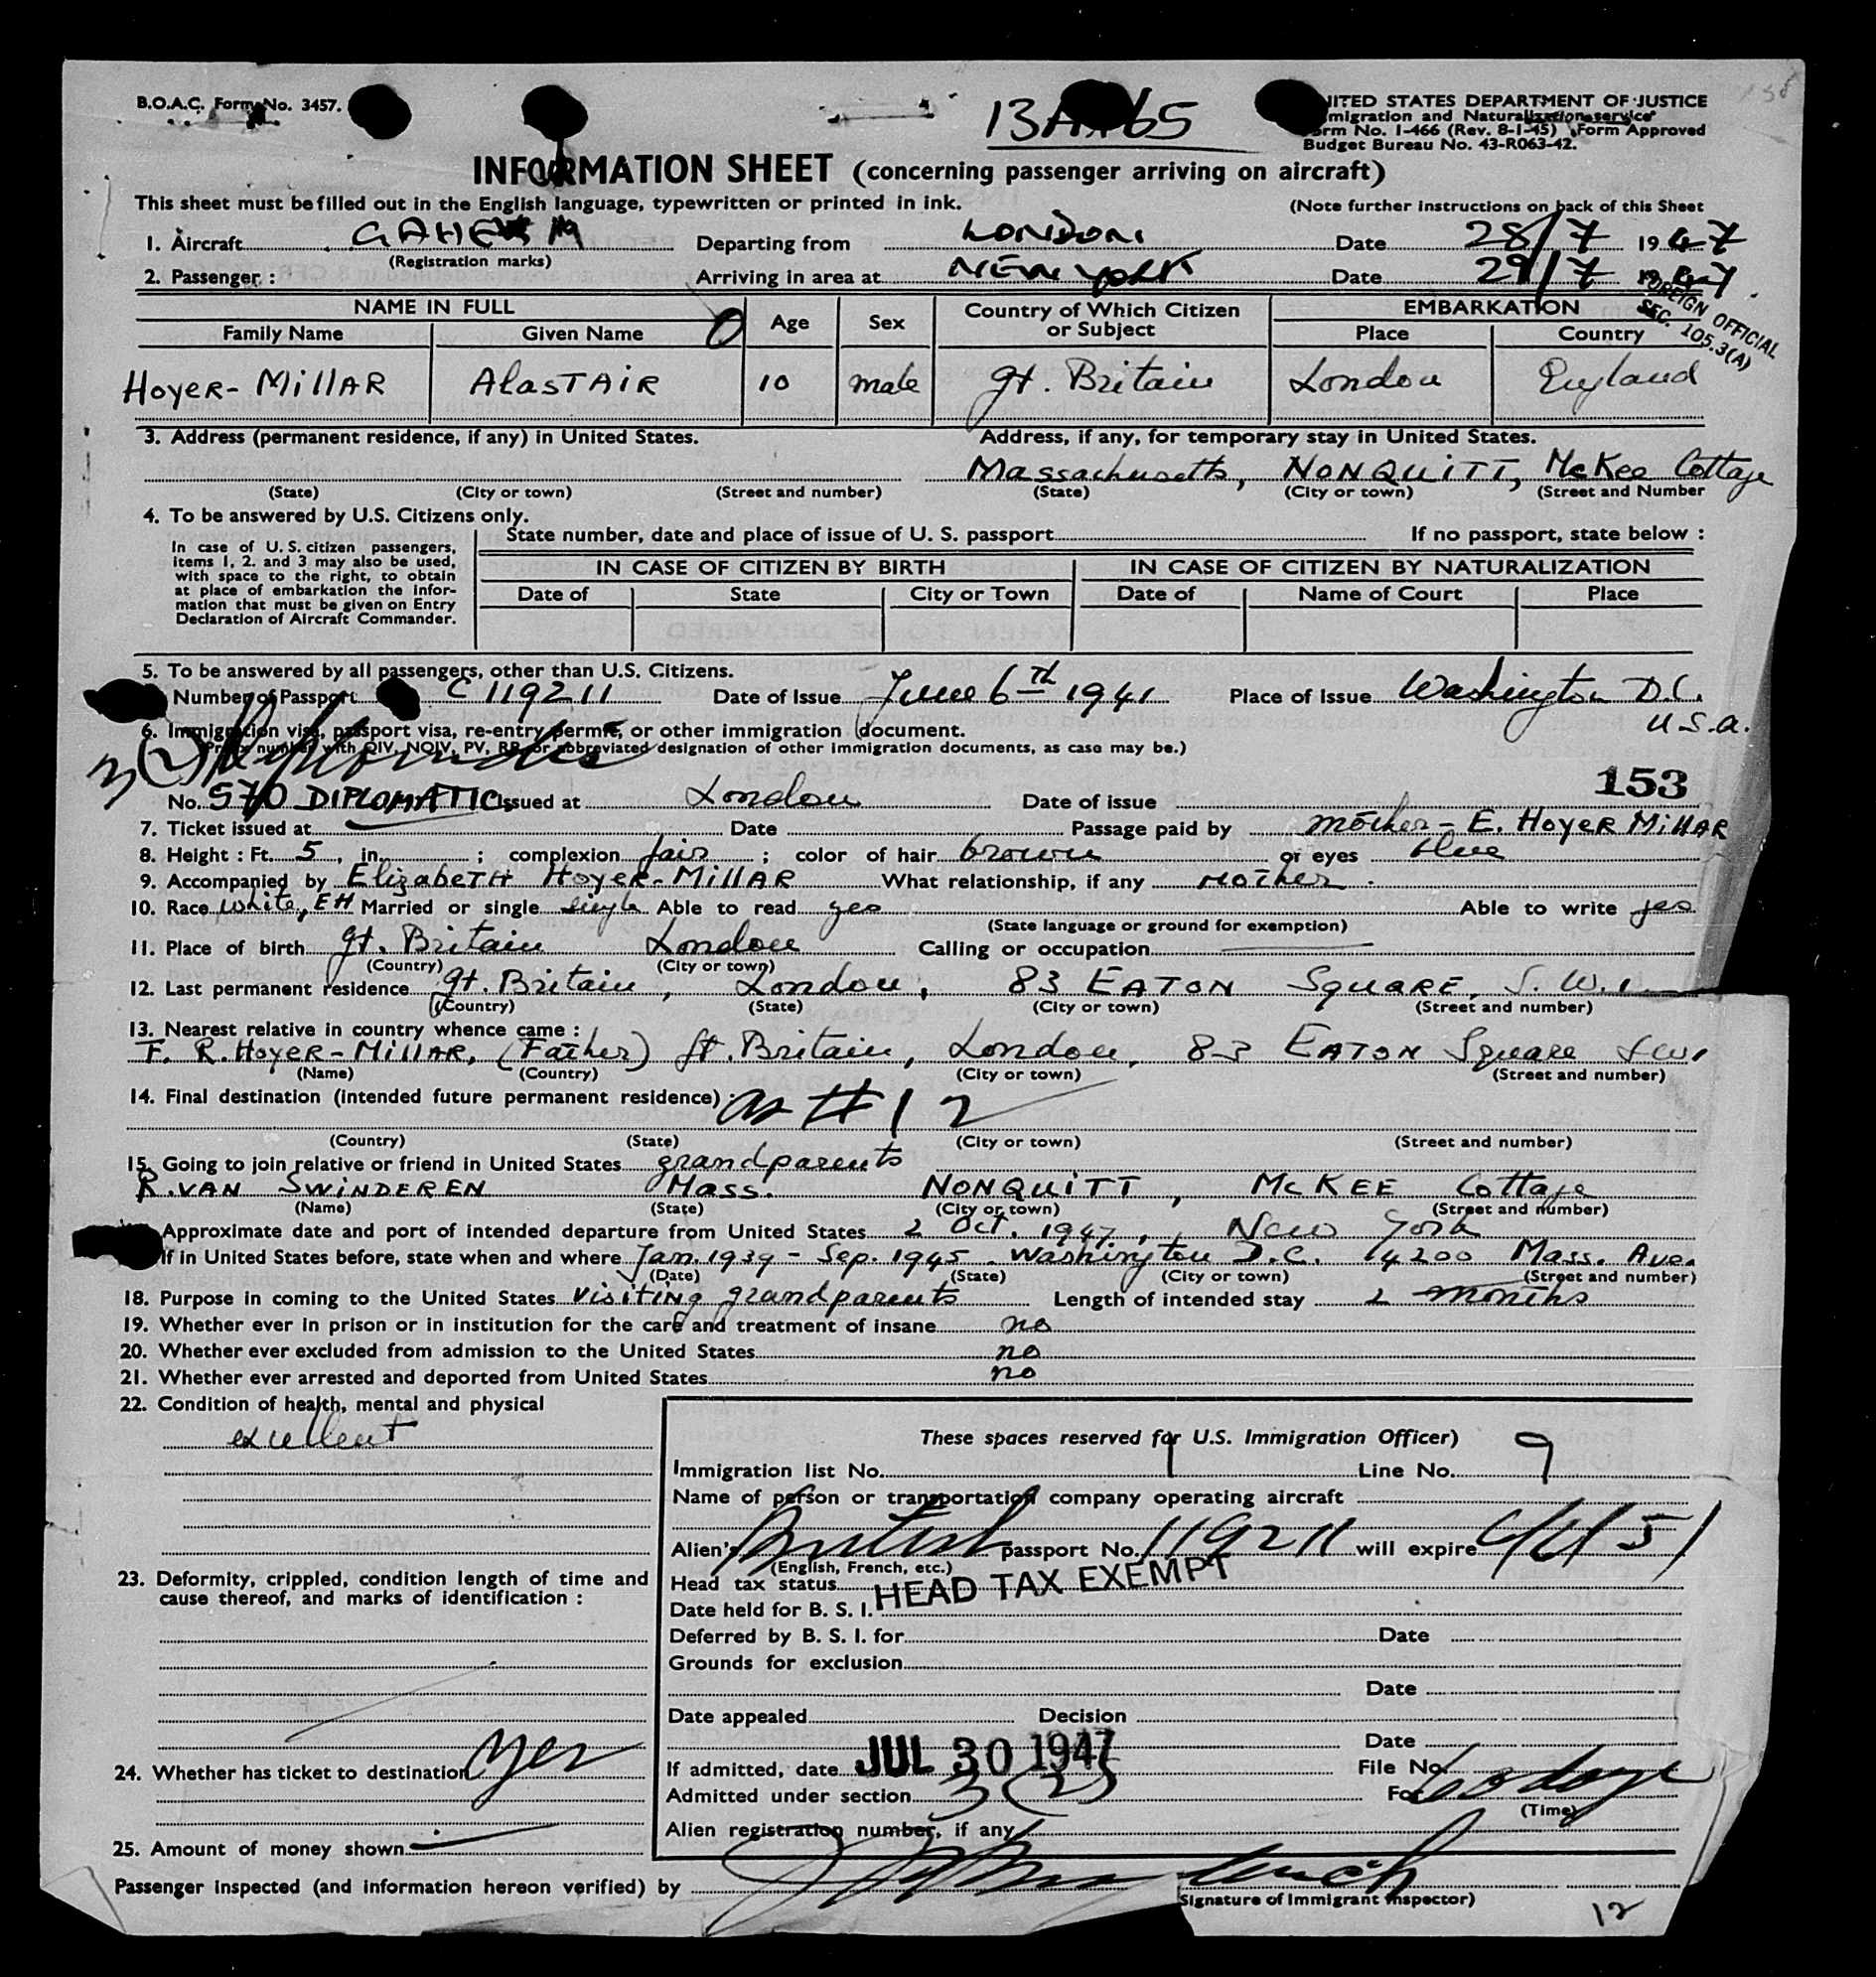 B.O.A.C. Form No. 3457.
UNITED STATES DEPARTMENT OF JUSTICE
Immigration and Naturalization service
Form No. I-466 (Rev. 8-1-45) Form Approved
Budget Bureau No. 43-R063-42.
INFORMATION SHEET (concerning passenger arriving on aircraft)
This sheet must be filled out in the English language, typewritten or printed in ink.
(Note further instructions on back of this Sheet
1. Aircraft Departing from LONDON Date 28/7 1947
(Registration marks)
2. Passenger : Arriving in area at NEW YORK Date 29/7 1947
FOREIGN OFFICIAL
SEC. 105.3(A)
NAME IN FULL Age Sex Country of Which Citizen or Subject EMBARKATION
Family Name Given Name Place Country
HOYER-MILLAR ALASTAIR 10 male Gt. Britain London England
3. Address (permanent residence, if any) in United States. Address, if any, for temporary stay in United States.
Massachusetts, NONQUITT, McKee Cottage
(State) (City or town) (Street and number) (State) (City or town) (Street and Number
4. To be answered by U.S. Citizens only.
State number, date and place of issue of U. S. passport If no passport, state below :
In case of U. S. citizen passengers,
items 1, 2. and 3 may also be used,
with space to the right, to obtain
at place of embarkation the infor-
mation that must be given on Entry
Declaration of Aircraft Commander.
IN CASE OF CITIZEN BY BIRTH IN CASE OF CITIZEN BY NATURALIZATION
Date of State City or Town Date of Name of Court Place
5. To be answered by all passengers, other than U.S. Citizens.
Number of Passport C 119211 Date of Issue June 6th 1941 Place of Issue Washington D.C.
U.S.A.
6. Immigration visa, passport visa, re-entry permit, or other immigration document.
(Prefix number with QIV, NQIV, PV, RP, or abbreviated designation of other immigration documents, as case may be.)
3 (2) Diplomatic
153
No. 570 DIPLOMATIC Issued at London Date of issue
7. Ticket issued at Date Passage paid by mother - E. HOYER MILLAR
8. Height : Ft. 5, in. ; complexion fair ; color of hair brown or eyes blue
9. Accompanied by Elizabeth HOYER-MILLAR What relationship, if any MOTHER.
10. Race white, EH Married or single single Able to read yes Able to write yes
(State language or ground for exemption)
11. Place of birth Gt. Britain London Calling or occupation
(Country) (City or town)
12. Last permanent residence Gt. Britain, London, 83 EATON SQUARE, S.W.1
(Country) (State) (City or town) (Street and number)
13. Nearest relative in country whence came :
F. R. HOYER-MILLAR, (Father) Gt. Britain, London, 83 EATON Square S.W.1
(Name) (Country) (City or town) (Street and number)
14. Final destination (intended future permanent residence) : as # 12
(Country) (State) (City or town) (Street and number)
15. Going to join relative or friend in United States grandparents
R. VAN SWINDEREN Mass. NONQUITT, McKEE Cottage
(Name) (State) (City or town) (Street and number)
Approximate date and port of intended departure from United States 2 Oct. 1947, New York
If in United States before, state when and where Jan. 1939 - Sep. 1945. Washington D.C. 4200 Mass. Ave.
(Date) (State) (City or town) (Street and number)
18. Purpose in coming to the United States visiting grandparents Length of intended stay 2 months
19. Whether ever in prison or in institution for the care and treatment of insane no
20. Whether ever excluded from admission to the United States no
21. Whether ever arrested and deported from United States no
22. Condition of health, mental and physical
excellent
23. Deformity, crippled, condition length of time and
cause thereof, and marks of identification :
24. Whether has ticket to destination Yes
25. Amount of money shown
These spaces reserved for U.S. Immigration Officer)
Immigration list No. 1 Line No. 9
Name of person or transportation company operating aircraft
Alien's British passport No. 119211 will expire 6/6/51
(English, French, etc.)
Head tax status HEAD TAX EXEMPT
Date held for B. S. I.
Deferred by B. S. I. for Date
Grounds for exclusion
Date
Date appealed Decision
Date
If admitted, date JUL 30 1947 File No.
Admitted under section 3(2) For
(Time)
Alien registration number, if any
Passenger inspected (and information hereon verified) by
(Signature of Immigrant Inspector)
12